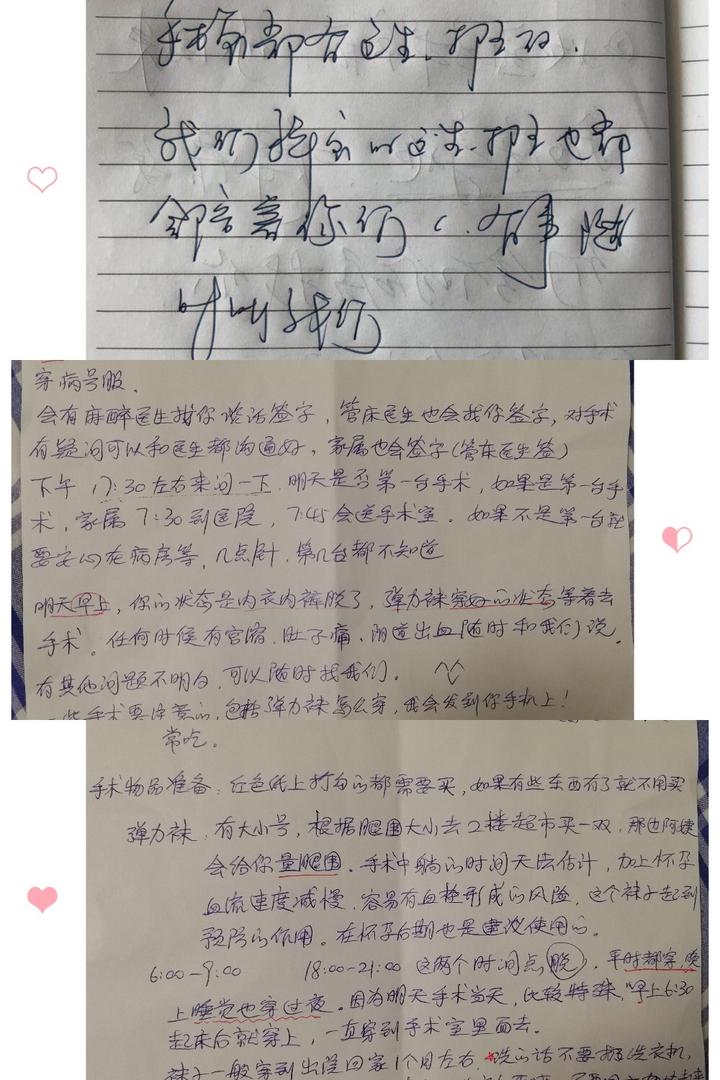 手术室都有医生、护士的.
我们科室的医生、护士也都
会陪着你们(.有事随
叫我们
穿病号服.
会有麻醉医生找你谈话签字，管床医生也会找你签字，对手术
有疑问可以和医生都沟通好，家属也会签字(管床医生签)
下午 17:30左右来问一下.明天是否第一台手术，如果是第一台手
术，家属 7:30到医院，7:45会送手术室. 如果不是第一台就
要安心在病房等，几点钟.第几台都不知道
明天早上，你的状态是内衣内裤脱了，弹力袜穿好的状态等着去
手术。任何时候有宫缩.肚子痛、阴道出血随时和我们说.
有其他问题不明白.可以随时找我们。
一些手术要注意的，包括弹力袜怎么穿，我会发到你手机上！
常吃。
手术物品准备：红色纸上打勾的都需要买，如果有些东西有了就不用买
弹力袜：有大小号，根据腿围大小去2楼超市买一双，那边阿姨
会给你量腿围. 手术中躺的时间无法估计，加上怀孕
血流速度减慢.容易有血栓形成的风险，这个袜子起到
预防的作用。在怀孕后期也是建议使用的。
6:00-9:00 18:00-21:00 这两个时间点脱，平时都穿，晚
上睡觉也穿过夜。因为明天手术当天，比较特殊，早上6:30
起床后就穿上，一直穿到手术室里面去.
袜子一般穿到出院回家1个月左右.洗的话不要放洗衣机，